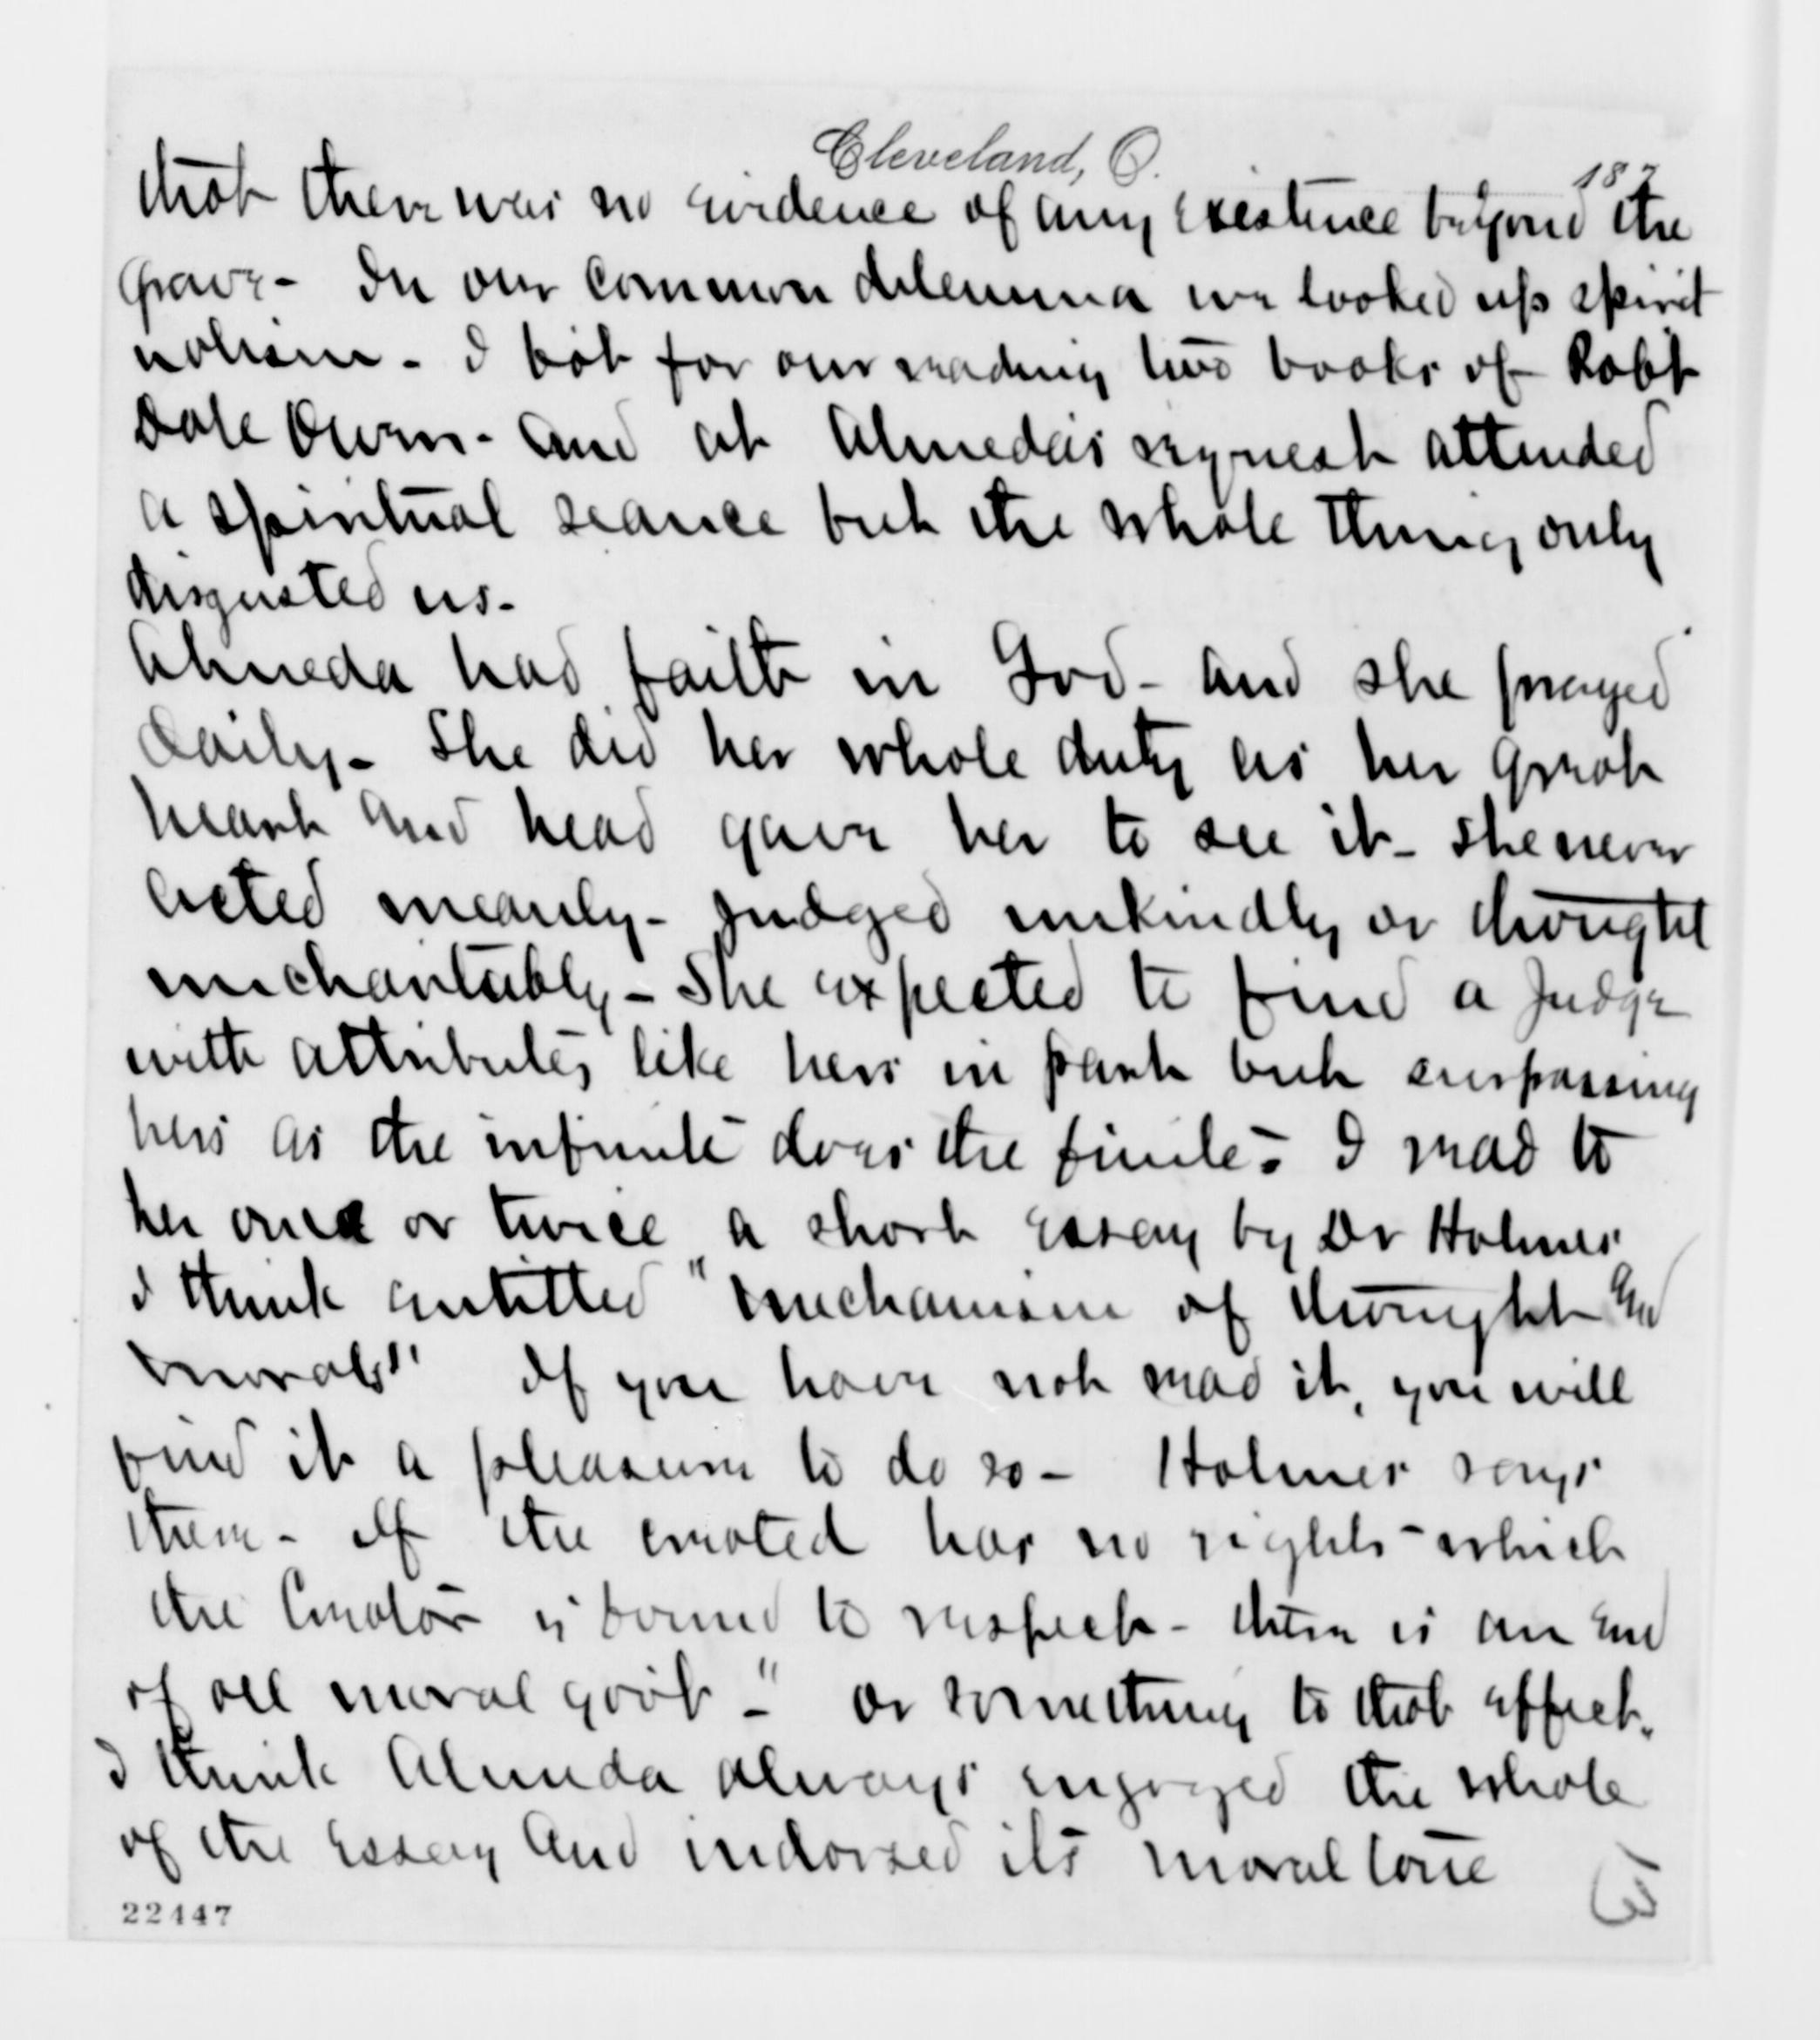 Cleveland, O. 187
that there was no evidence of any existence beyond the
grave - In our common dilemma we looked up spirit
ualism - I bot for our reading two books of Robt
Dale Owen - and at Almedas request attended
a spiritual seance but the whole thing only
disgusted us -
Almeda had faith in God - and she prayed
daily - She did her whole duty as her great
heart and head gave her to see it - She never
acted meanly - judged unkindly or thought
uncharitably - She expected to find a Judge
with attributes like hers in part but surpassing
hers as the infinite does the finite - I read to
her once or twice a short essay by Dr Holmes
I think entitled "mechanism of thought and
morals" If you have not read it, you will
find it a pleasure to do so - Holmes says
there - If the created has no rights - which
the Creator is bound to respect - there is an end
of all moral gov't -" or something to that effect.
I think Almeda always enjoyed the whole
of the essay and indorsed its moral tone
22447
3